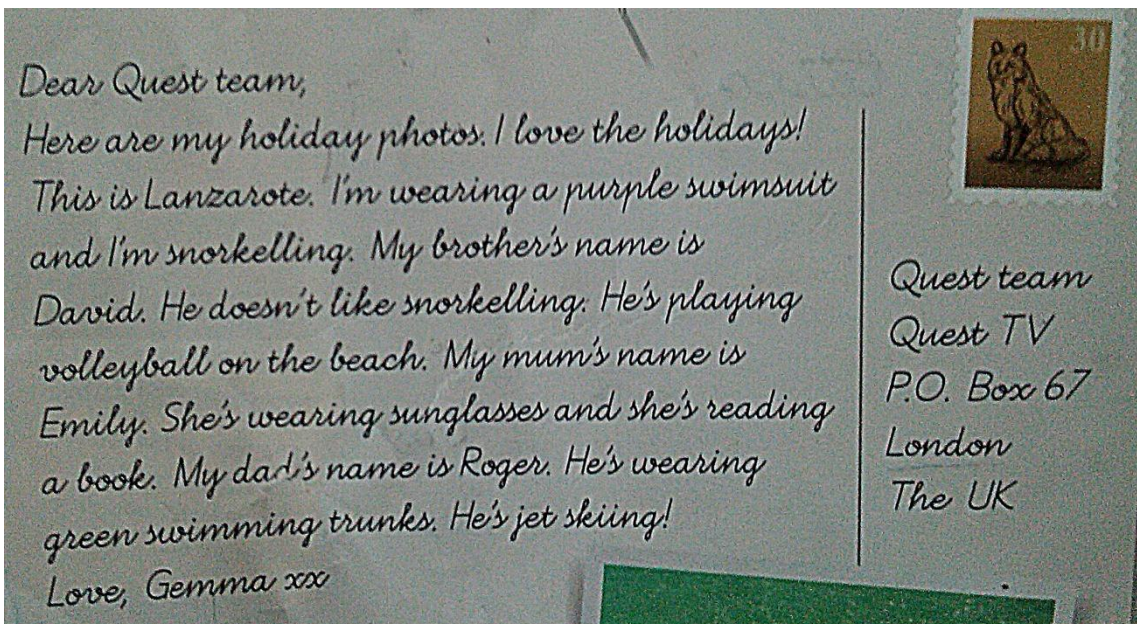 Dear Quest team,
Here are my holiday photos. I love the holidays!
This is Lanzarote. I'm wearing a purple swimsuit
and I'm snorkelling. My brother's name is
David. He doesn't like snorkelling. He's playing
volleyball on the beach. My mum's name is
Emily. She's wearing sunglasses and she's reading
a book. My dad's name is Roger. He's wearing
green swimming trunks. He's jet skiing!
Love, Gemma xx
30
Quest team
Quest TV
P.O. Box 67
London
The UK